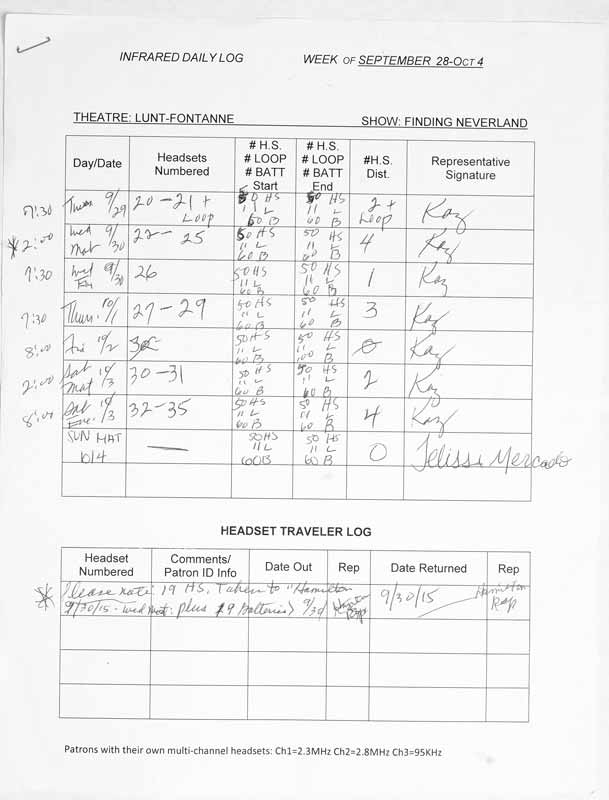 INFRARED DAILY LOG WEEK OF SEPTEMBER 28-OCT 4
THEATRE: LUNT-FONTANNE SHOW: FINDING NEVERLAND
Day/Date Headsets Numbered # H.S. # LOOP # BATT Start # H.S. # LOOP # BATT End #H.S. Dist. Representative Signature
7:30 Tues 9/29 20-21 + Loop 50 HS 11 L 60 B 50 HS 11 L 60 B 2 + Loop Kaz
* 2:00 Wed Mat 9/30 22-25 50 HS 11 L 60 B 50 HS 11 L 60 B 4 Kaz
7:30 Wed Eve 9/30 26 50 HS 11 L 60 B 50 HS 11 L 60 B 1 Kaz
7:30 Thurs. 10/1 27-29 50 HS 11 L 60 B 50 HS 11 L 60 B 3 Kaz
8:00 Fri 10/2 50 HS 11 L 60 B 50 HS 11 L B 0 Kaz
2:00 Sat Mat 10/3 30-31 50 HS 11 L 60 B 50 HS 11 L 60 B 2 Kaz
8:00 Sat Eve. 10/3 32-35 50 HS 11 L 60 B 50 HS 11 L 60 B 4 Kaz
SUN MAT 10/4 — 50 HS 11 L 60 B 50 HS 11 L 60 B 0 Jelissa Mercado
HEADSET TRAVELER LOG
Headset Numbered Comments/ Patron ID Info Date Out Rep Date Returned Rep
* Please note: 19 HS. Taken to "Hamilton
9/30/15 - Wed Mat: plus 19 Batteries) 9/30 Hamilton Rep 9/30/15 Hamilton Rep
Patrons with their own multi-channel headsets: Ch1=2.3MHz Ch2=2.8MHz Ch3=95KHz